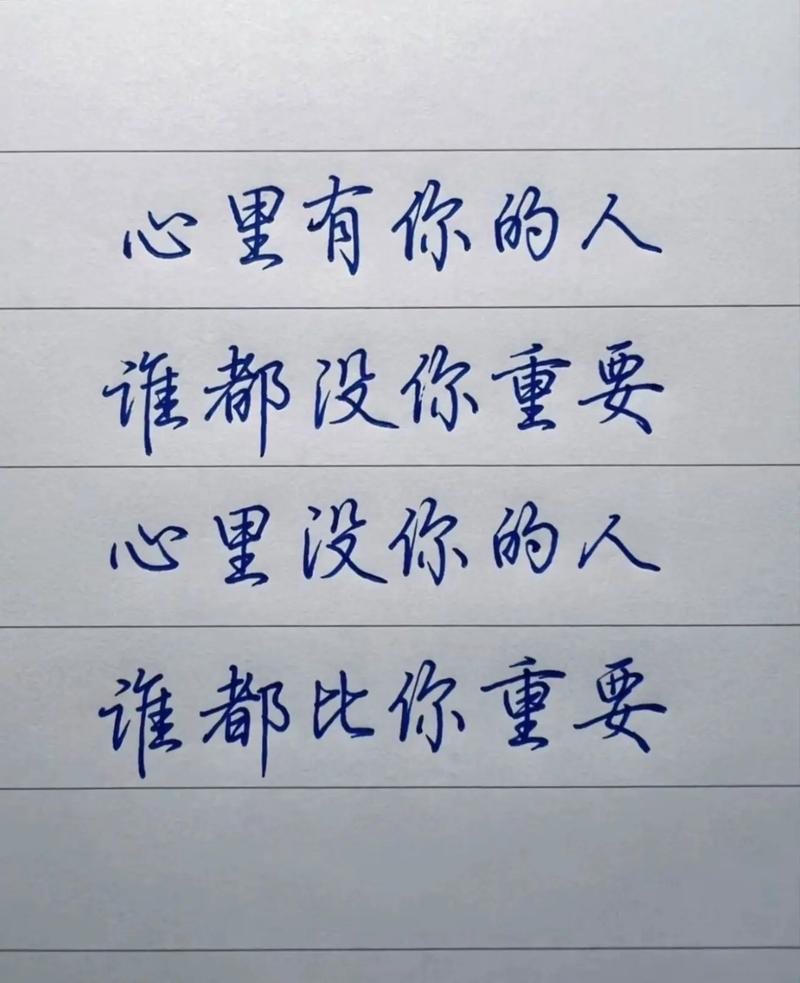 心里有你的人
谁都没你重要
心里没你的人
谁都比你重要